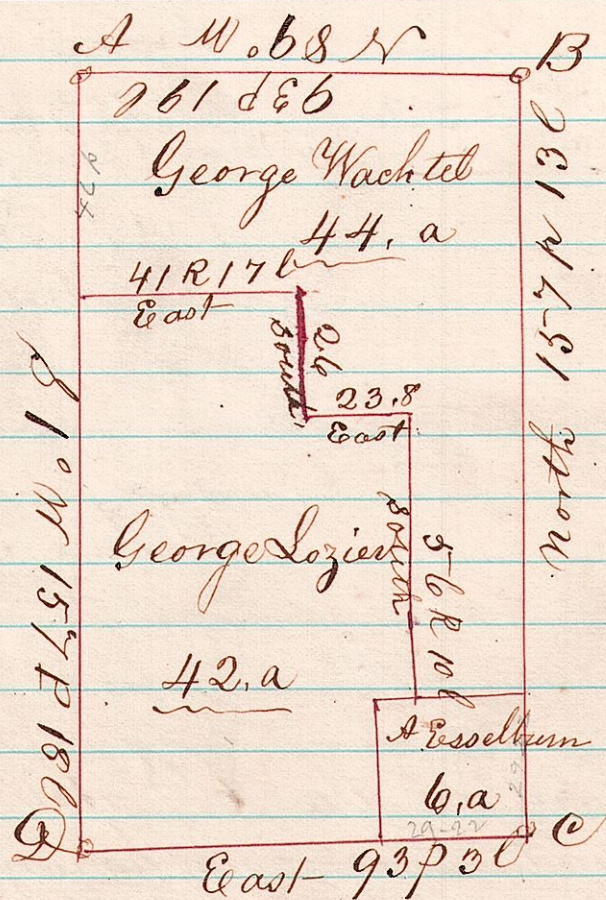 A N 89° W B
93P 19L
George Wachtel
44, a
41 R 17 L
East
South
26
23.8
East
George Lozier
South
56 R 10 L
42, a
A Esselburn
6, a
29-22
North 157 P 13 L
S 1° W 157 P 18 L
D
C
East 93 P 3 L